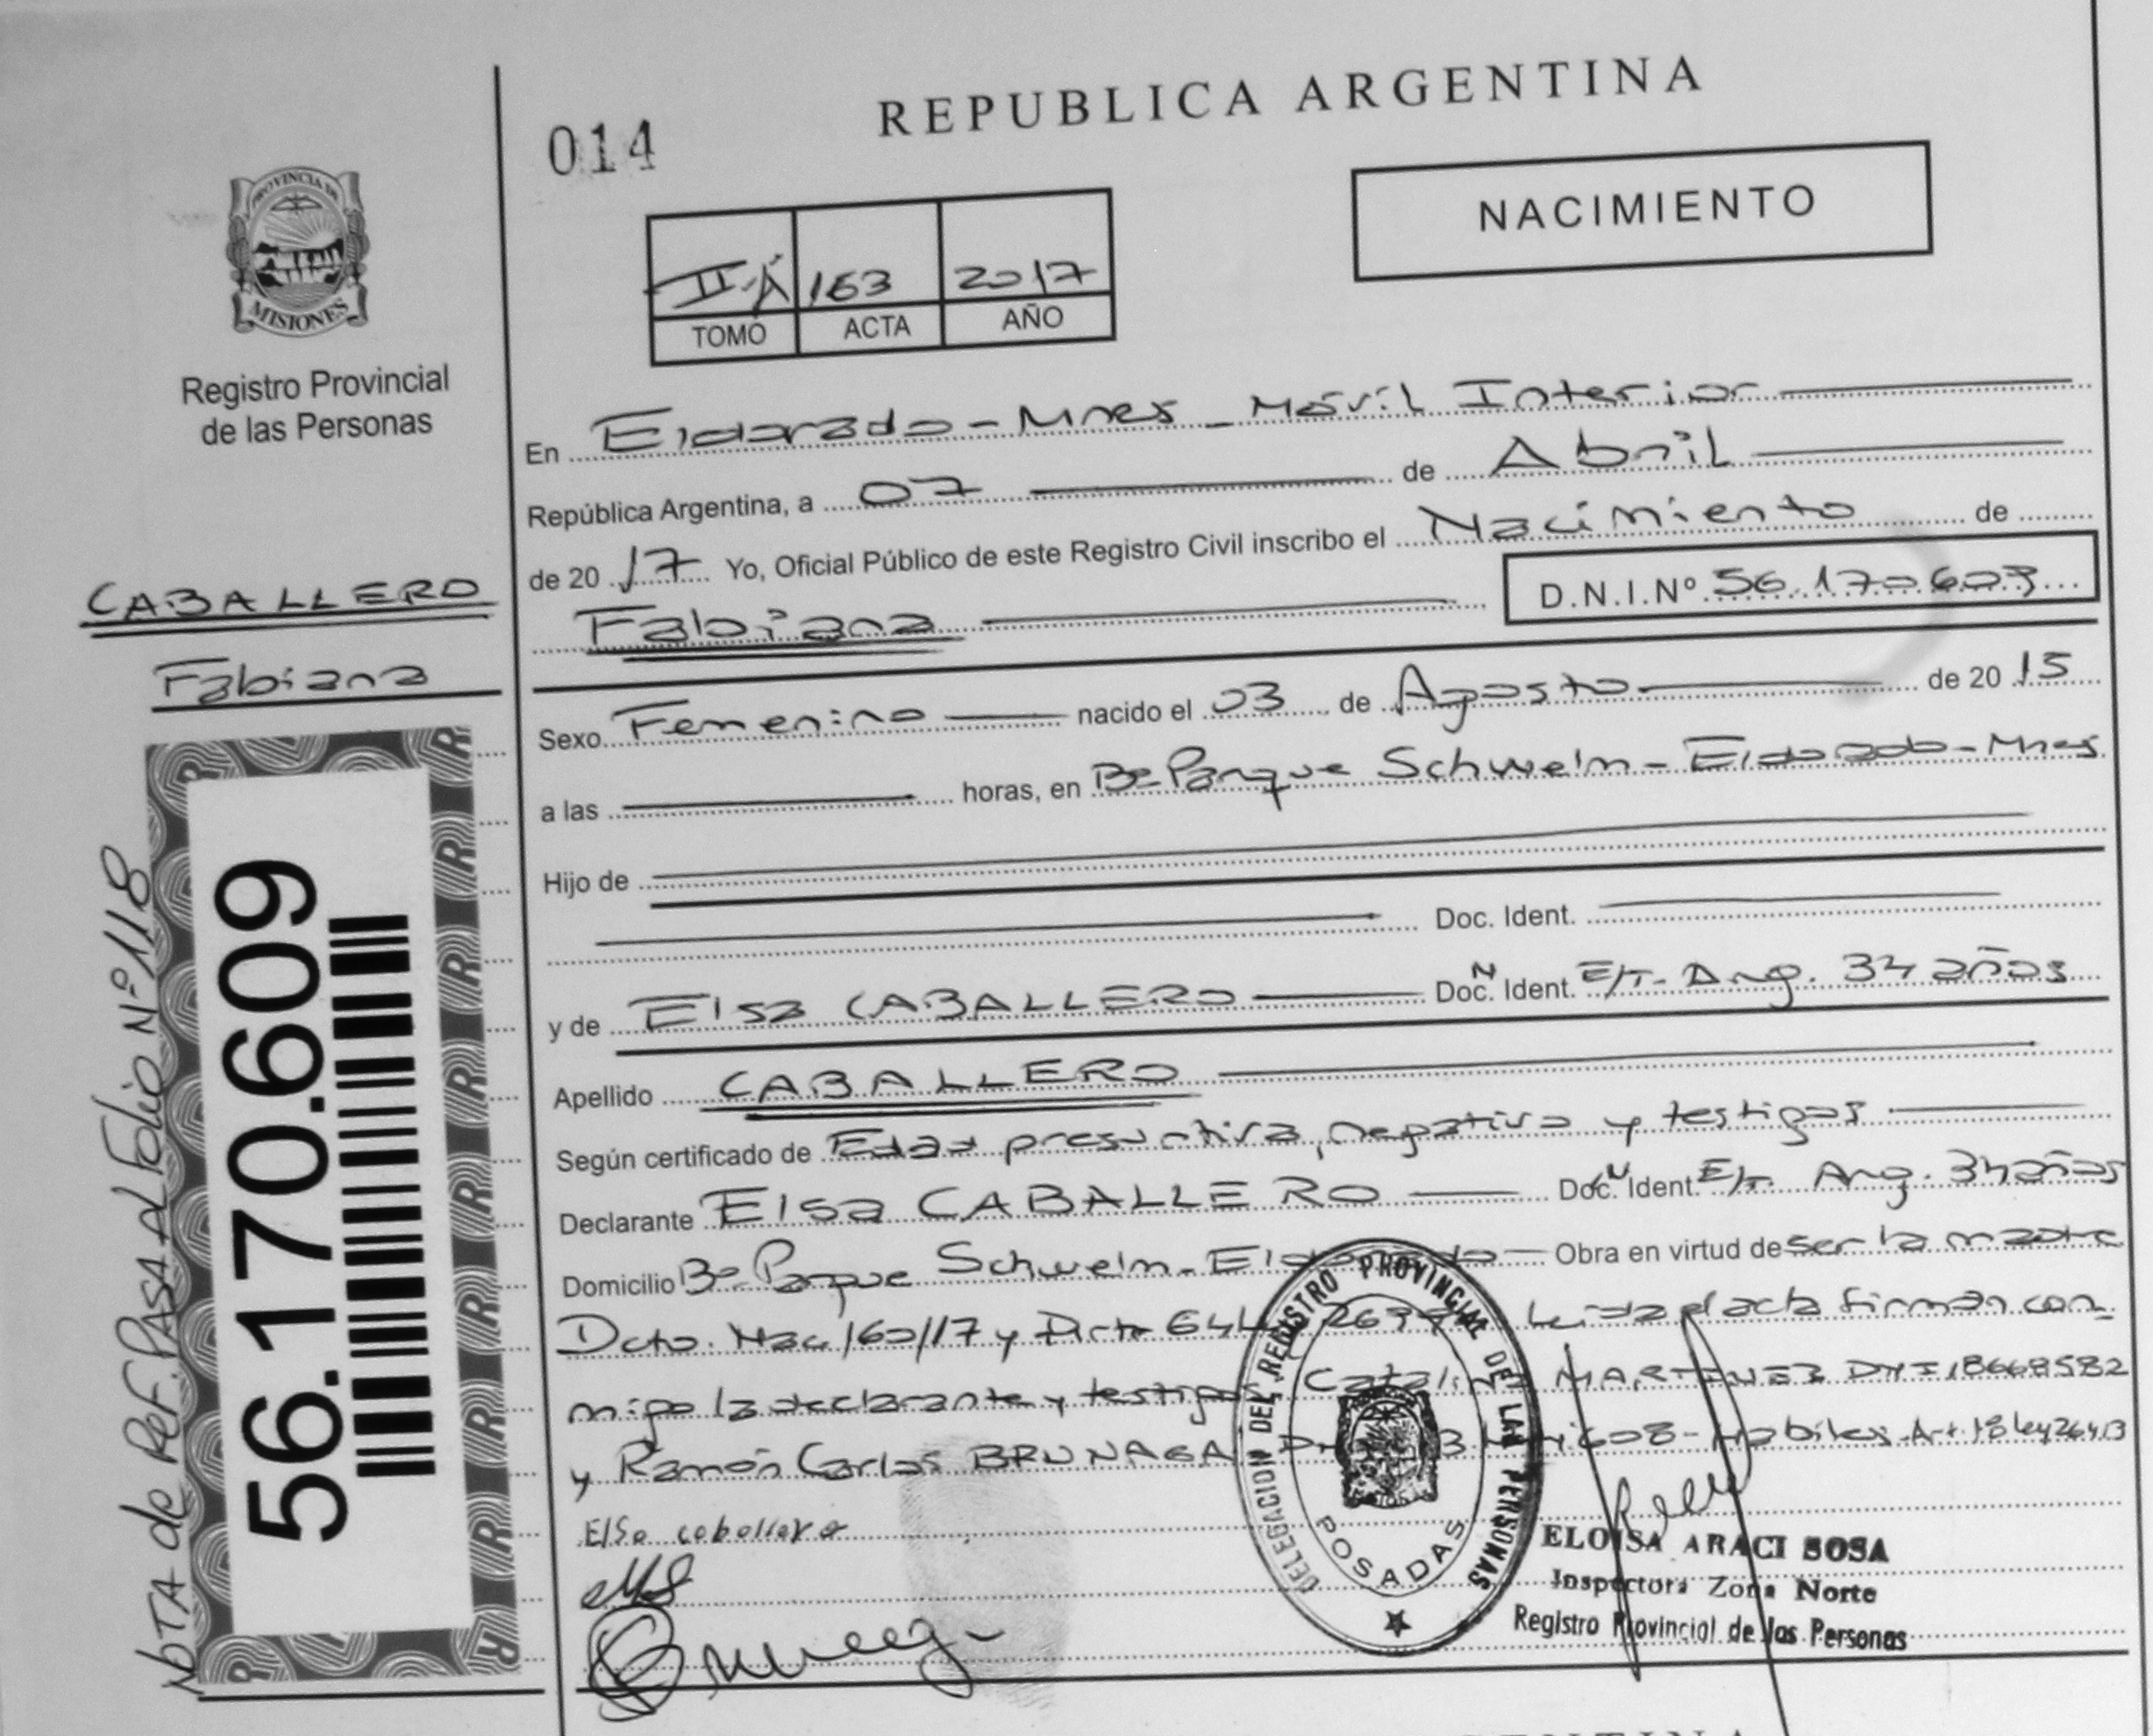 014
REPUBLICA ARGENTINA
NACIMIENTO
II-A 163 2017
TOMO ACTA AÑO
PROVINCIA DE
MISIONES
Registro Provincial
de las Personas
CABALLERO
Fabiana
56.170.609
NOTA de Ref. PASA AL Folio Nº 118
En Eldorado - Mnes - Móvil Interior
República Argentina, a 07 de Abril
de 2017 Yo, Oficial Público de este Registro Civil inscribo el Nacimiento de
Fabiana D.N.I.Nº 56.170.609
Sexo Femenino nacido el 03 de Agosto de 2015
a las horas, en Bº Parque Schwelm - Eldorado - Mnes
Hijo de
Doc. Ident.
y de Elsa CABALLERO Doc. N Ident. E/T. Arg. 34 años
Apellido CABALLERO
Según certificado de Edad presuntiva, negativo y testigos
Declarante Elsa CABALLERO Doc. N Ident. E/T. Arg. 34 años
Domicilio Bº Parque Schwelm - Eldorado Obra en virtud de ser la madre
Dcto. Nac 160/17 y Leida el acta firman con
migo la declarante y testigos Catalina MARTINEZ DNI 18668582
y Ramón Carlos BRUNAGA Hábiles Art 18 ley 26413
Elsa caballero
DELEGACION DEL REGISTRO PROVINCIAL DE LAS PERSONAS
POSADAS
ELOISA ARACI SOSA
Inspectora Zona Norte
Registro Provincial de las Personas